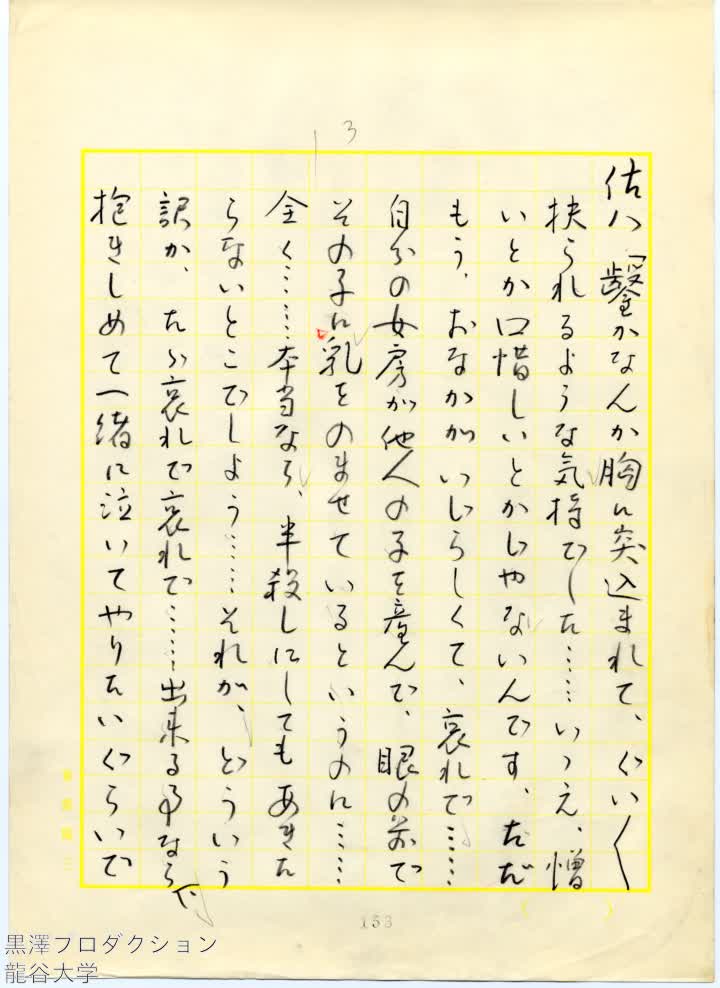 13
佐八「鑿かなんか胸に突込まれて、ぐい〱
抉られるような気持でした……いつえ、憎
いとか口惜しいとかじやないんです、ただ
もう、おなかがいじらしくて、哀れで……
自分の女房が他人の子を産んで、眼の前で
その子に乳をのませているというのに……
全く……本当なら、半殺しにしてもあきた
らないとこでしよう……それが、どういう
訳か、たゞ哀れで哀れで……出来る事なら
抱きしめて一緒に泣いてやりたいくらいで
153
黒澤プロダクション
龍谷大学